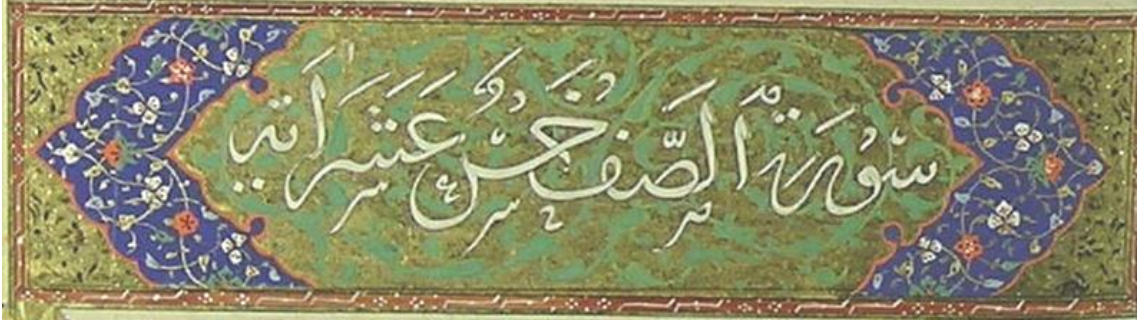 سُوْرَةُ الصَّفِ خَمْسُ عَشَرَ اٰيَة